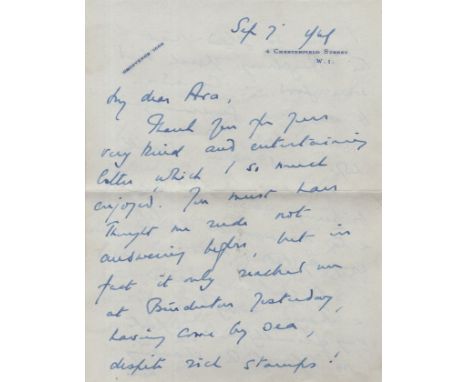 Sep 7
GROSVENOR
4 CHESTERFIELD STREET
W. 1.
My dear Ava,
Thank you for your
very kind and entertaining
letter, which I so much
enjoyed. You must have
thought me rude not
answering before, but in
fact it only reached me
at Binderton yesterday,
having come by sea,
despite rich stamps!